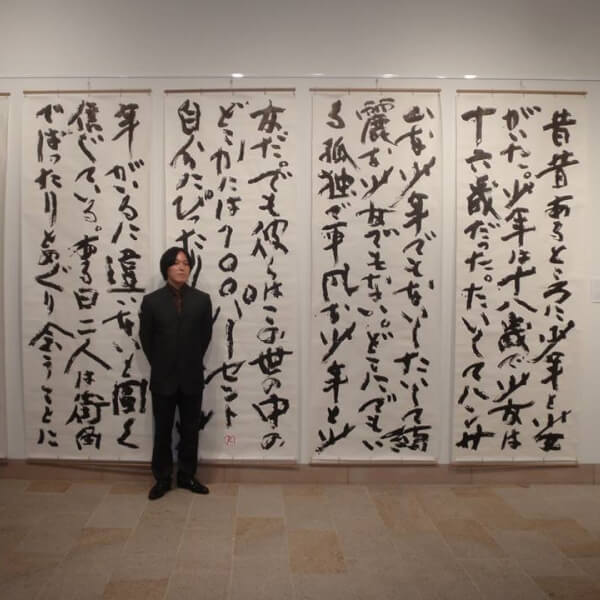 昔昔あるところに少年と少女
がいた。少年は十八歳で少女は
十六歳だった。たいしてハンサ
ムな少年でもないしたいして綺
麗な少女でもない。どこにでもい
る孤独で平凡な少年と少
女だ。でも彼らはこの世の中の
どこかには100パーセント
自分にぴったり
年がいるに違いないと固く
信じている。ある日二人は街角
でばったりとめぐり会うことに